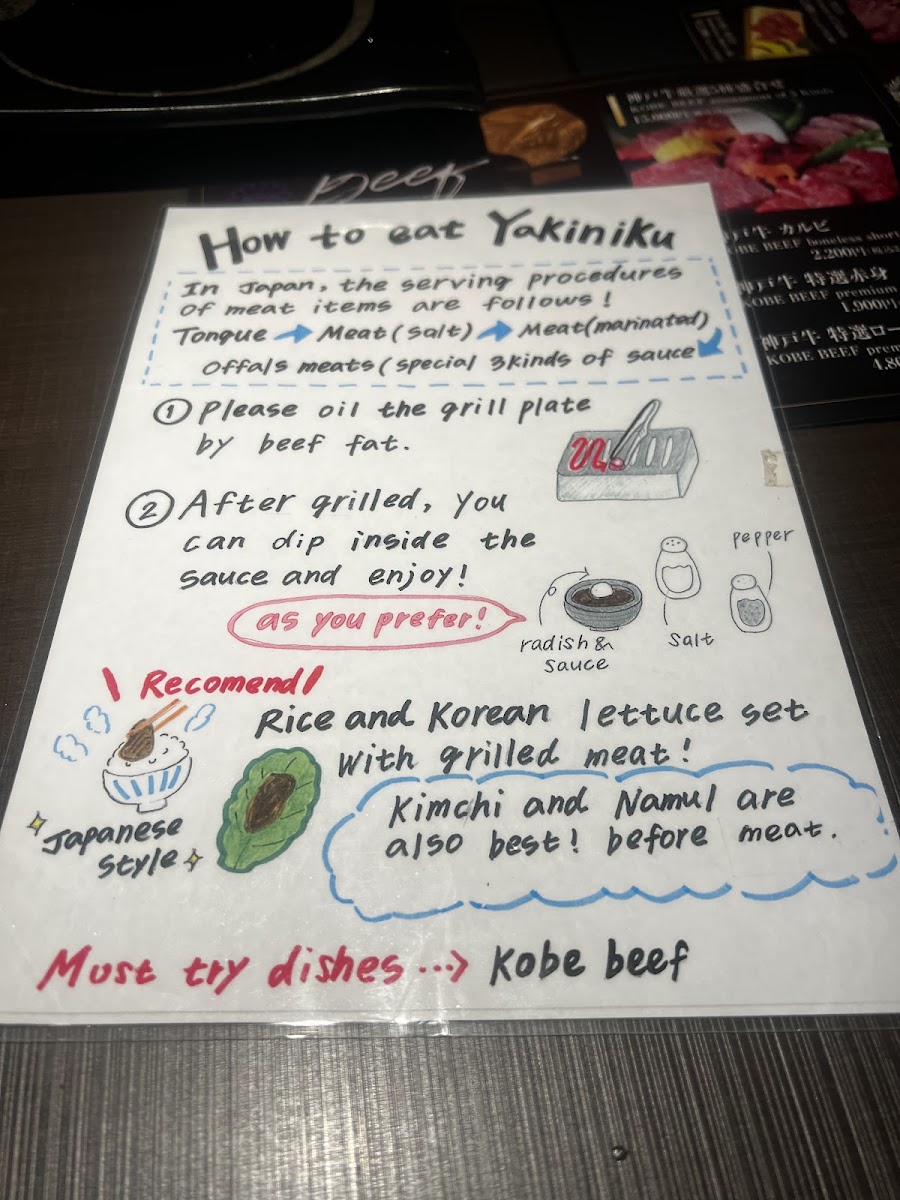 Beef
神戸牛厳選5種盛合せ
KOBE BEEF
カルビ
KOBE BEEF boneless short
2,200円
神戸牛 特選赤身
KOBE BEEF premium
1,900円
神戸牛 特選ロー
KOBE BEEF prem
4,80
How to eat Yakiniku
In Japan, the serving procedures
of meat items are follows!
Tongue → Meat (salt) → Meat(marinated)
Offals meats (special 3kinds of sauce
① Please oil the grill plate
by beef fat.
② After grilled, you
can dip inside the
sauce and enjoy!
as you prefer!
radish &
sauce
salt
pepper
\ Recomend /
Rice and Korean lettuce set
with grilled meat!
Japanese
style
Kimchi and Namul are
also best! before meat.
Must try dishes ···> Kobe beef